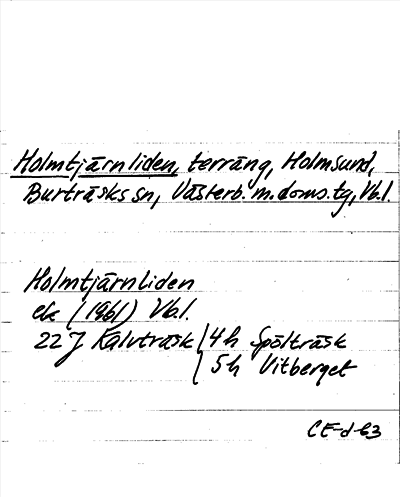 Holmtjärnliden, terräng, Holmsund,
Burträsks sn, Västerb. m. doms.tg, Vb.l.
Holmtjärnliden
ek (1961) Vb.l.
22 J Kalvträsk 4h Spölträsk
5h Vitberget
CE-d 63